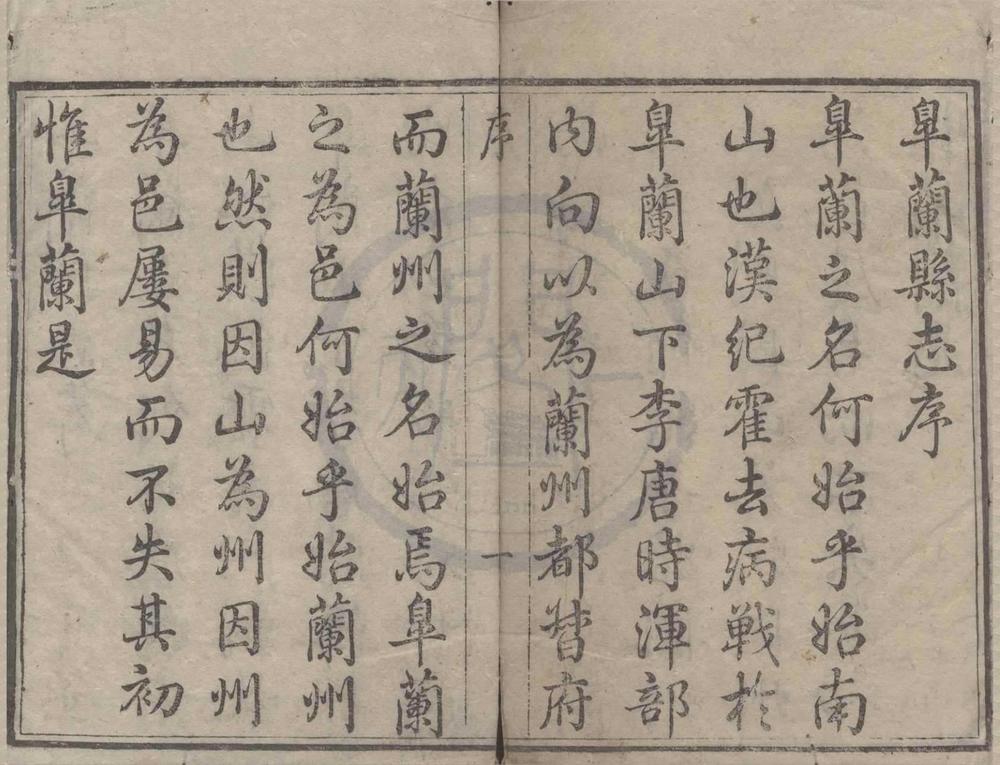 皐蘭縣志序
皐蘭之名何始乎始南
山也漢紀霍去病戰於
皐蘭山下李唐時渾部
内向以為蘭州都督府
序 一
而蘭州之名始焉皐蘭
之為邑何始乎始蘭州
也然則因山為州因州
為邑屢易而不失其初
惟皐蘭是